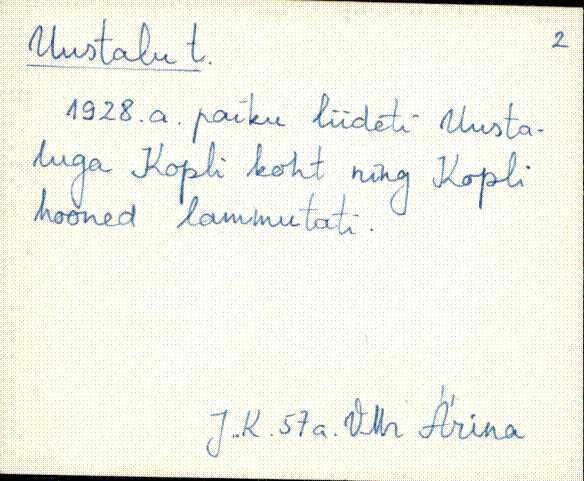 Uustalu t. 2
1928. a. paiku liideti Uusta-
luga Kopli koht ning Kopli
hooned lammutati.
J. K. 57 a. VMr Ärina